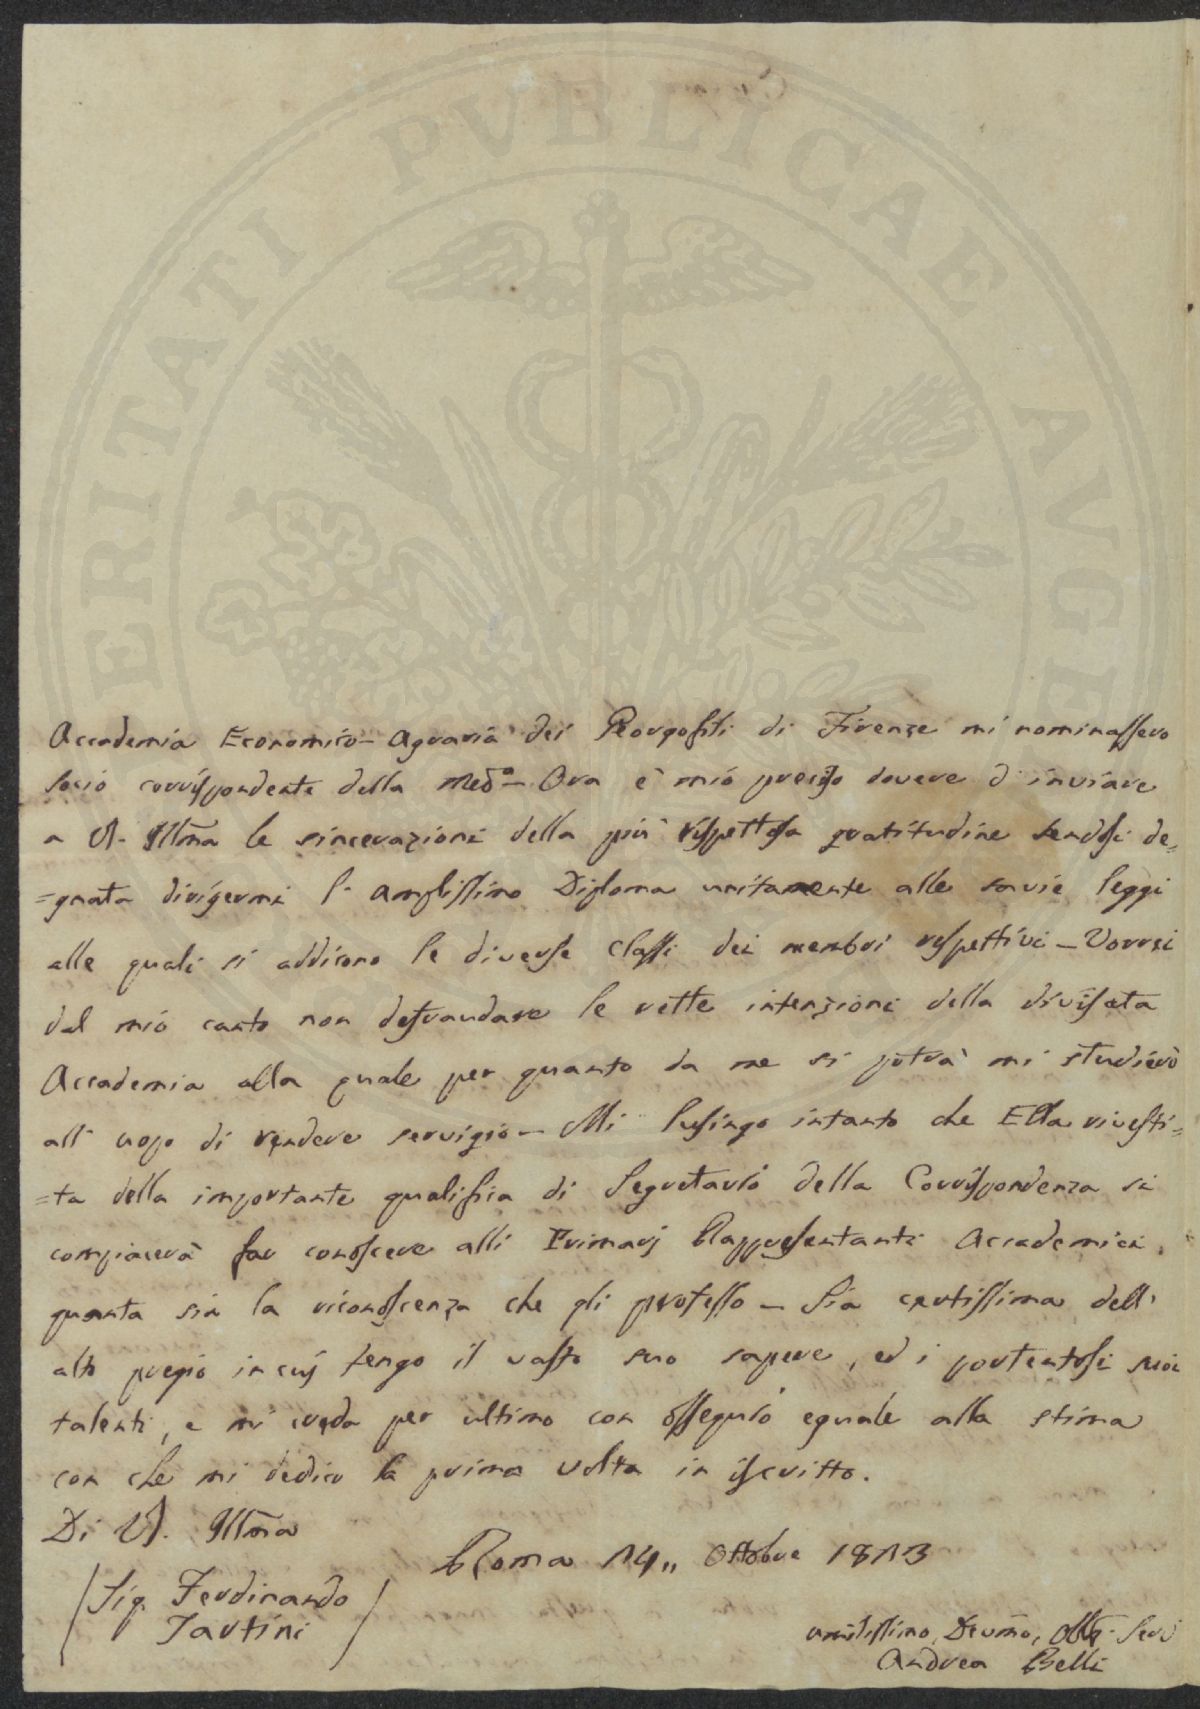 PVBLICAE
ERITATI
AVGE
Accademia Economico-Agraria dei Georgofili di Firenze mi nominassero
socio corrispondente della med.a – Ora è mio preciso dovere d'inviare
a V.S. Illma le sincerazioni della più rispettosa gratitudine sendosi de=
=gnata dirigermi l'amplissimo Diploma unitamente alle savie leggi
alle quali si addicono le diverse classi dei membri respettivi – Vorrei
dal mio canto non defraudare le rette intenzioni della divisata
Accademia alla quale per quanto da me si potrà mi studierò
all'uopo di rendere servigio – Mi lusingo intanto che Ella rivesti=
=ta della importante qualifica di Segretario della Corrispondenza si
compiacerà far conoscere alli Primarj Rappresentanti Accademici,
quanta sia la riconoscenza che gli professo – Sia certissima dell'
alto pregio in cuj tengo il vasto suo sapere, ed i portentosi suoi
talenti, e mi creda per ultimo con ossequio eguale alla stima
con che mi dedico la prima volta in iscritto.
Di V.S. Illma
Roma 14,, Ottobre 1813
Sig. Ferdinando
Tartini
umilissimo, Devmo, Obb. Serv
Andrea Belli